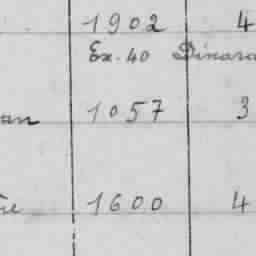 1902 4
Ex. 40 Dinara
an 1057 3
1600 4